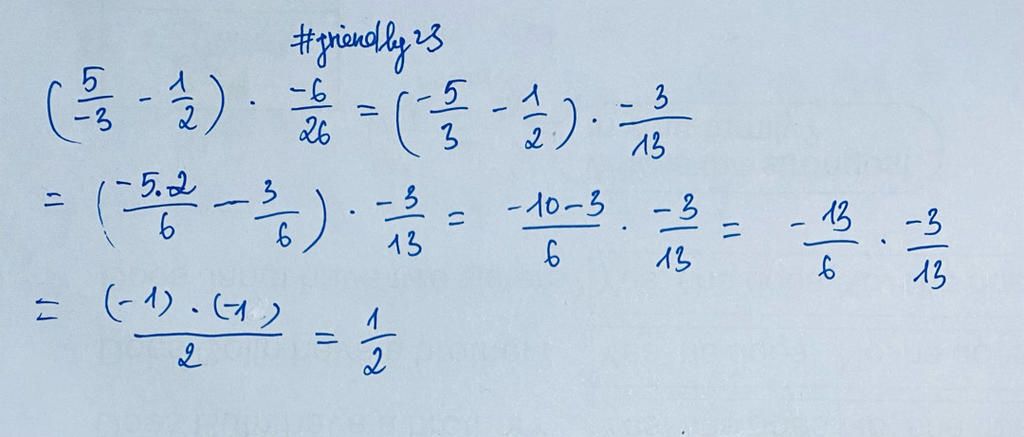 #friendly23
(5/-3 - 1/2) · -6/26 = (-5/3 - 1/2) · -3/13
= (-5.2/6 - 3/6) · -3/13 = -10-3/6 · -3/13 = -13/6 · -3/13
= (-1) . (-1)/2 = 1/2